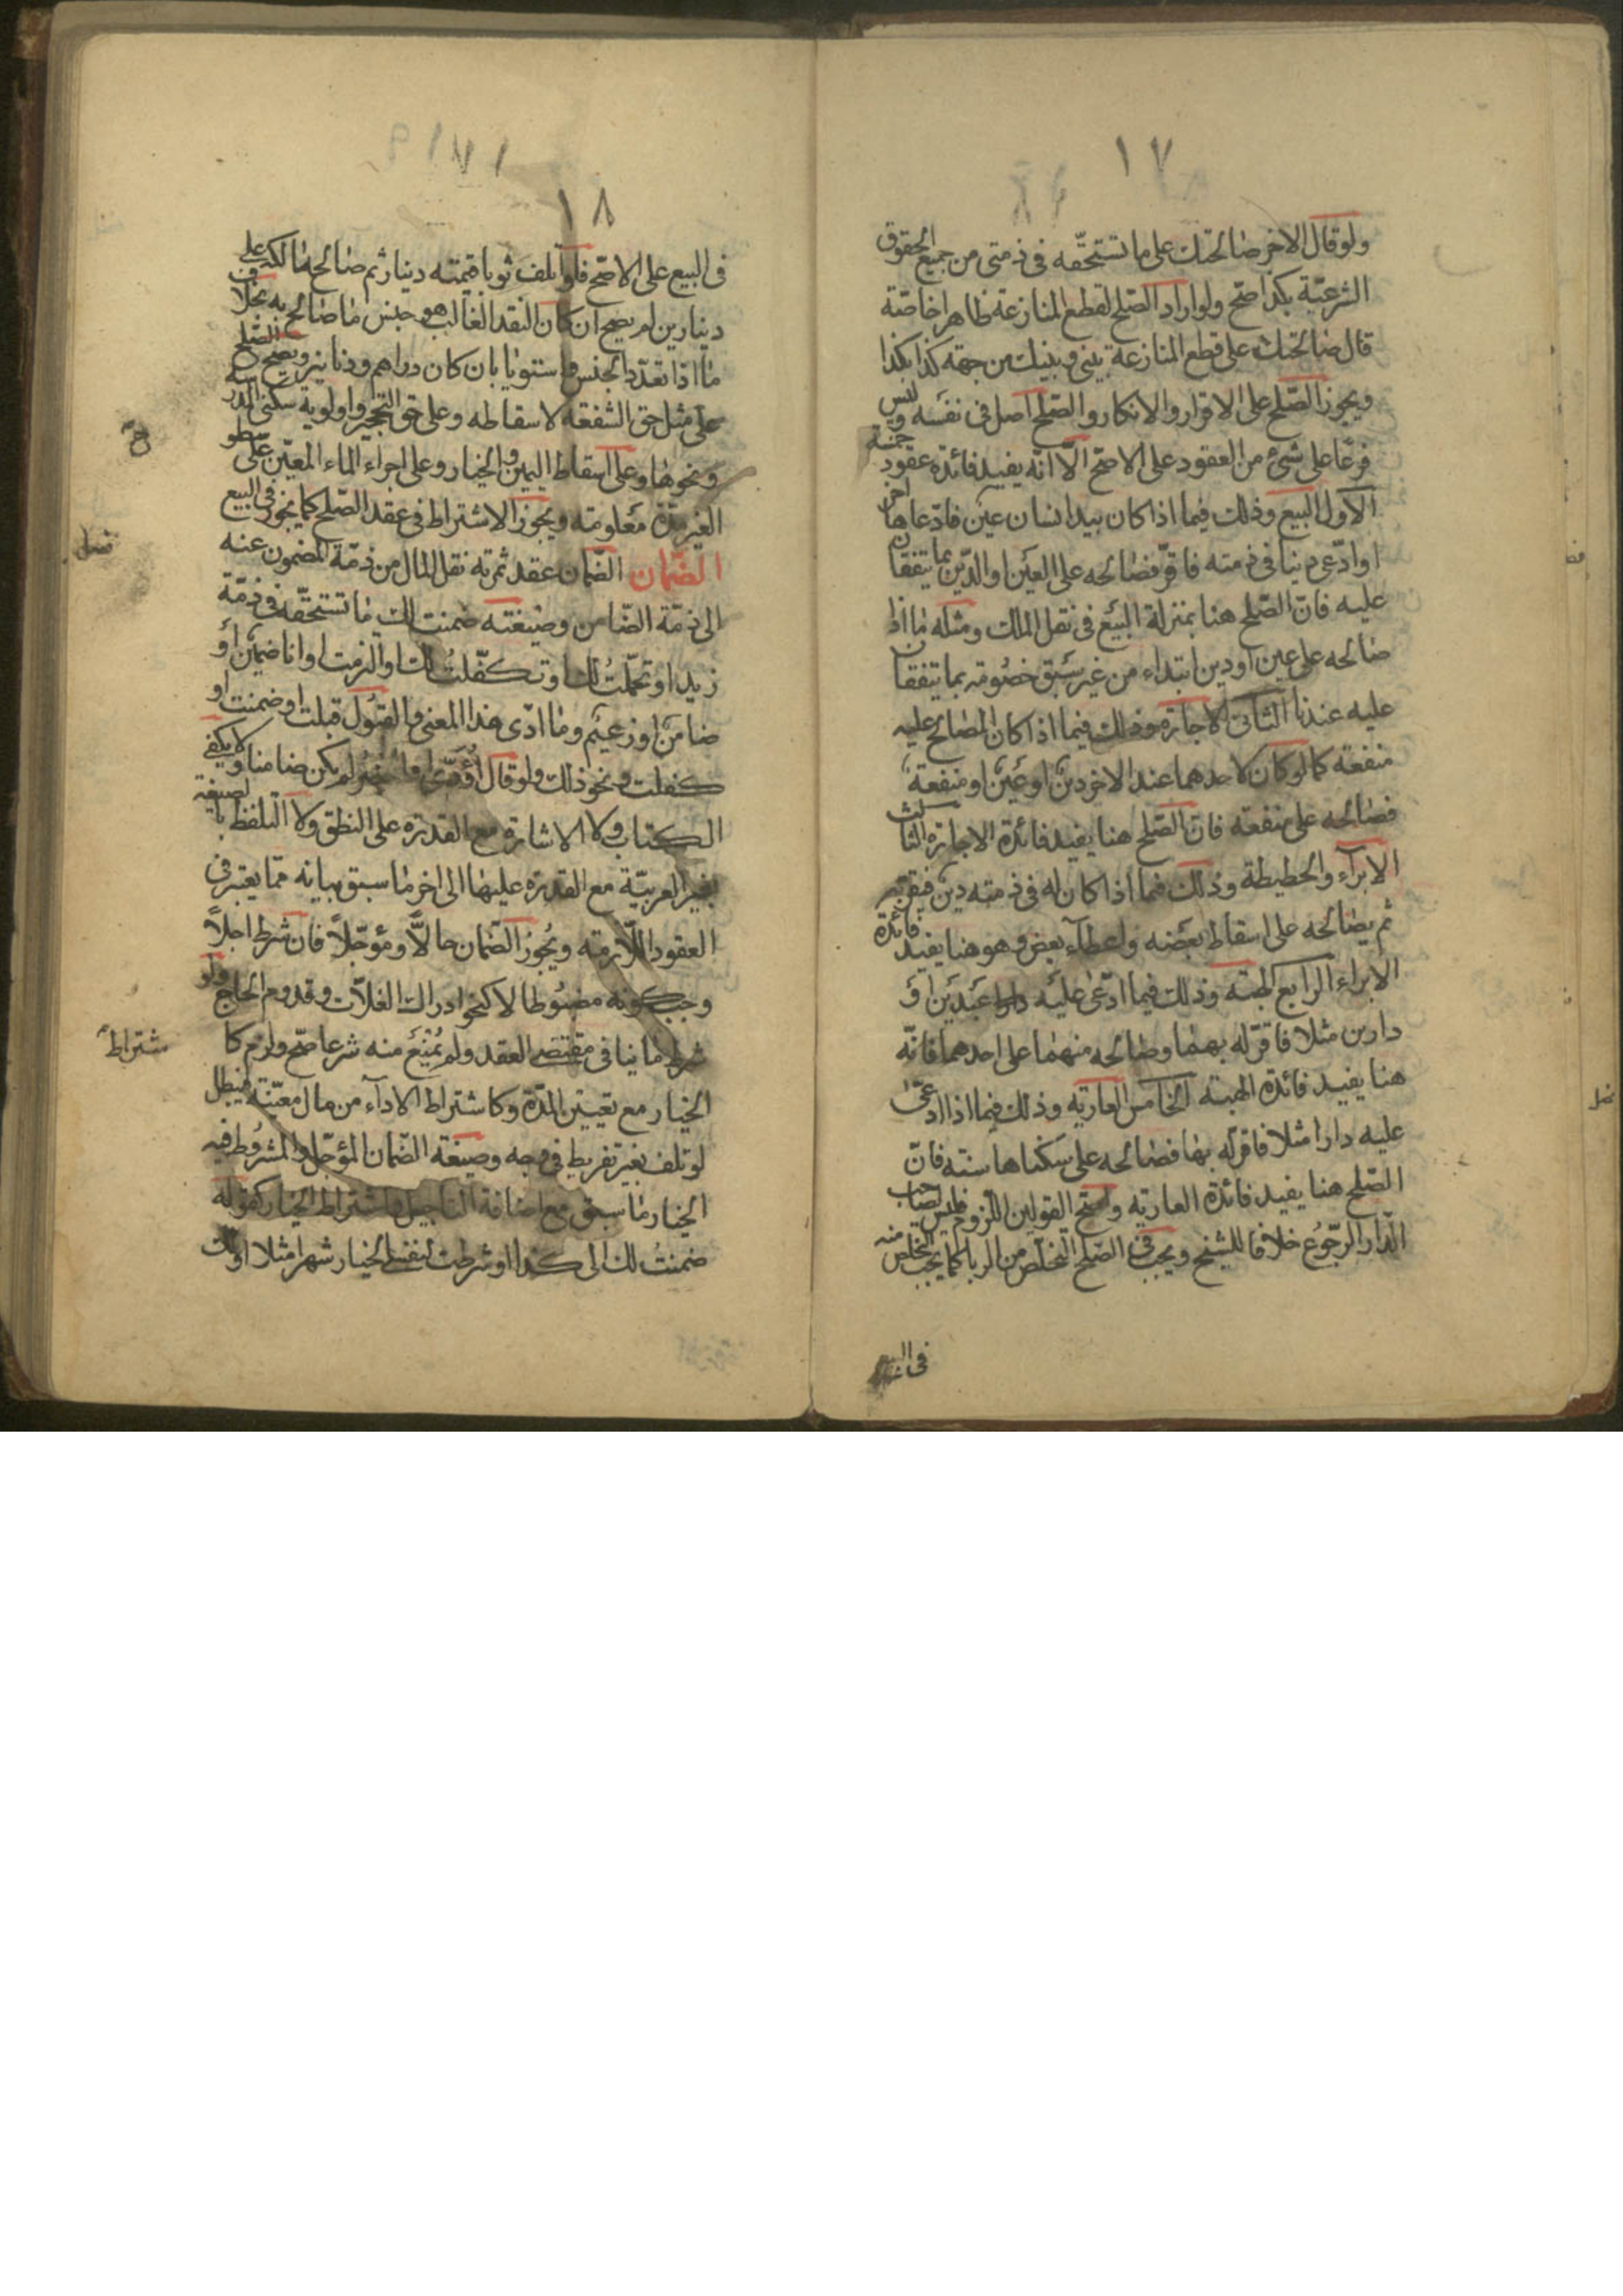 ١٧
ولو قال الاخر صالحتك على ما تستحقّه فى ذمتى من جميع الحقوق
الشرعيّة بكذا صحّ ولو اراد الصّلح لقطع المنازعة ظاهرا خاصّة
قال صالحتك على قطع المنازعة بينى وبينك من جهة كذا بكذا
ويجوز الصّلح على الاقرار والانكار والصّلح اصل فى نفسه وليس
فرعًا على شئ من العقود على الاصحّ الّا انّه يفيد فائدة عقود خمسة
الاول البيع وذلك فيما اذا كان بيد انسان عين فادّعاها اخر
او ادّعى دينا فى ذمته فاقرّ فصالحه على العين او الدّين بما يتفقان
عليه فانّ الصّلح هنا بمنزلة البيع فى نقل الملك ومثله ما اذا
صالحه على عين او دين ابتداء من غير سبق خصومة بما يتفقان
عليه عندنا الثانى الاجارة وذلك فيما اذا كان المصالح عليه
منفعة كما لو كان لاحدهما عند الاخر دين او عين او منفعة
فصالحه على منفعة فانّ الصّلح هنا يفيد فائدة الاجارة الثالث
الابرآء والحطيطة وذلك فيما اذا كان له فى ذمته دين فيقرّ به
ثم يصالحه على اسقاط بعضه واعطآء بعض وهو هنا يفيد فائدة
الابراء الرابع الهبة وذلك فيما ادّعى عليه عبدين او
دارين مثلا فاقرّ له بهما وصالحه منهما على احدهما فانّه
هنا يفيد فائدة الهبة الخامس العارية وذلك فيما اذا ادعى
عليه دارا مثلا فاقرّ له بها فصالحه على سكناها سنة فانّ
الصّلح هنا يفيد فائدة العارية واصحّ القولين اللّزوم فليس لصاحب
الدّار الرّجوع خلافا للشيخ ويجب فى الصّلح التخلّص من الربا كما يجب التخلص منه
فى البيع
١٨
فى البيع على الاصحّ فلو اتلف ثوبا قيمته دينار ثم صالحه مالكه على
دينارين لم يصح ان كان النقد الغالب هو جنس ما صالح به بخلاف
ما اذا تعدّد الجنس واستويا بان كان دراهم ودنانير ويصح الصّلح
على مثل حق الشفعة لاسقاطه وعلى حق التحجير واولوية سكنى المدرسة
ونحوها وعلى اسقاط اليمين والخيار وعلى اجراء الماء المعيّن على سطح
الغير مدّة معلومة ويجوز الاشتراط فى عقد الصّلح كما يجوز فى البيع
الضّمان الضّمان عقد ثمرته نقل المال من ذمّة المضمون عنه
الى ذمّة الضّامن وصيغته ضمنت لك ما تستحقّه فى ذمّة
زيد او تحمّلتُ لك او تكفّلتُ لك او التزمت او انا ضمين او
ضامن او زعيم وما ادّى هذا المعنى والقبول قبلت او ضمنت او
كفلت ونحو ذلك ولو قال اُؤدّى او اُحضر لم يكن ضامنا ولا يكفى
الكتاب ولا الاشارة مع القدرة على النطق ولا التلفظ بالصيغة
بغير العربيّة مع القدرة عليها الى اخر ما سبق بيانه ممّا يعتبر فى
العقود اللّازمة ويجوز الضّمان حالًّا ومؤجّلاً فان شرط اجلاً
وجب كونه مضبوطا لا كنحو ادراك الغلّات وقدوم الحاج ولو
شرط ما ينافى مقتضى العقد ولم يُمنع منه شرعا صحّ ولزم كا
الخيار مع تعيين المدّة وكاشتراط الادآء من مال معيّنة فيبطل
لو تلف بغير تفريط فى وجه وصيغة الضّمان المؤجّل والمشروط فيه
الخيار ما سبق مع اضافة التاجيل واشتراط الخيار كقوله
ضمنتُ لك الى كذا او شرطت لنفسى الخيار شهرا مثلا او لك
شتراط